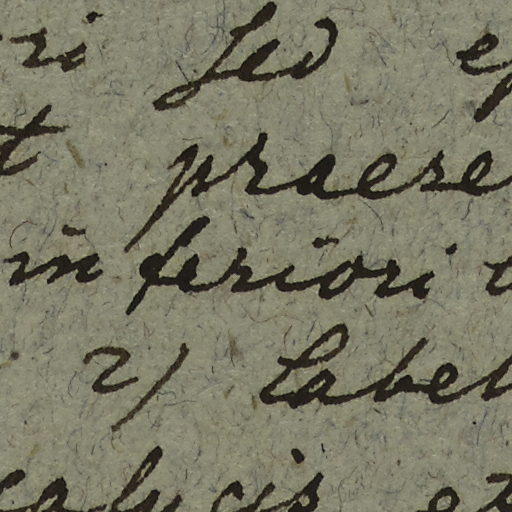 ri sed
t praese
inferiori
2) Label
calycis et